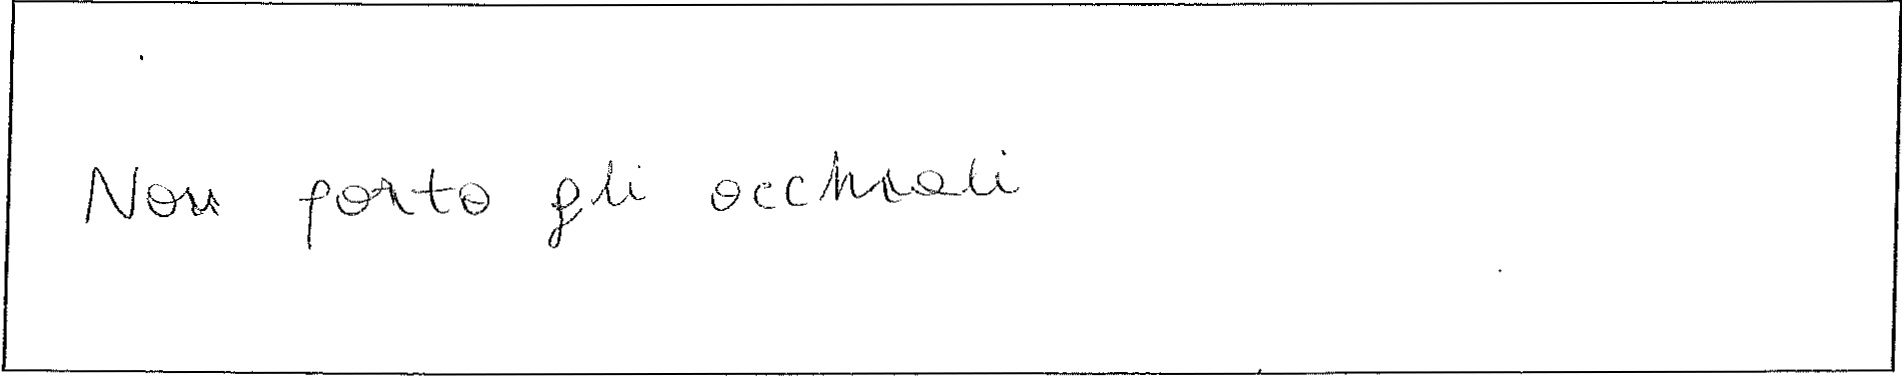 Non porto gli occhiali